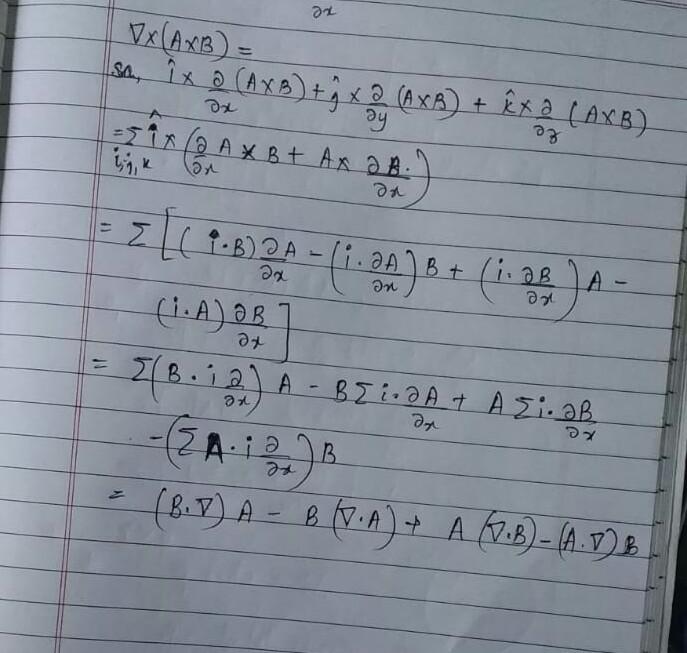 ∂x
∇×(A×B) =
so, î × ∂/∂x (A×B) + ĵ × ∂/∂y (A×B) + k̂ × ∂/∂z (A×B)
= Σ_{i,j,k} î × (∂A/∂x × B + A × ∂B/∂x)
= Σ [(i·B) ∂A/∂x − (i·∂A/∂x) B + (i·∂B/∂x) A −
(i·A) ∂B/∂x]
= Σ(B·i ∂/∂x) A − B Σ i·∂A/∂x + A Σ i·∂B/∂x
− (Σ A·i ∂/∂x) B
= (B·∇) A − B (∇·A) + A (∇·B) − (A·∇) B